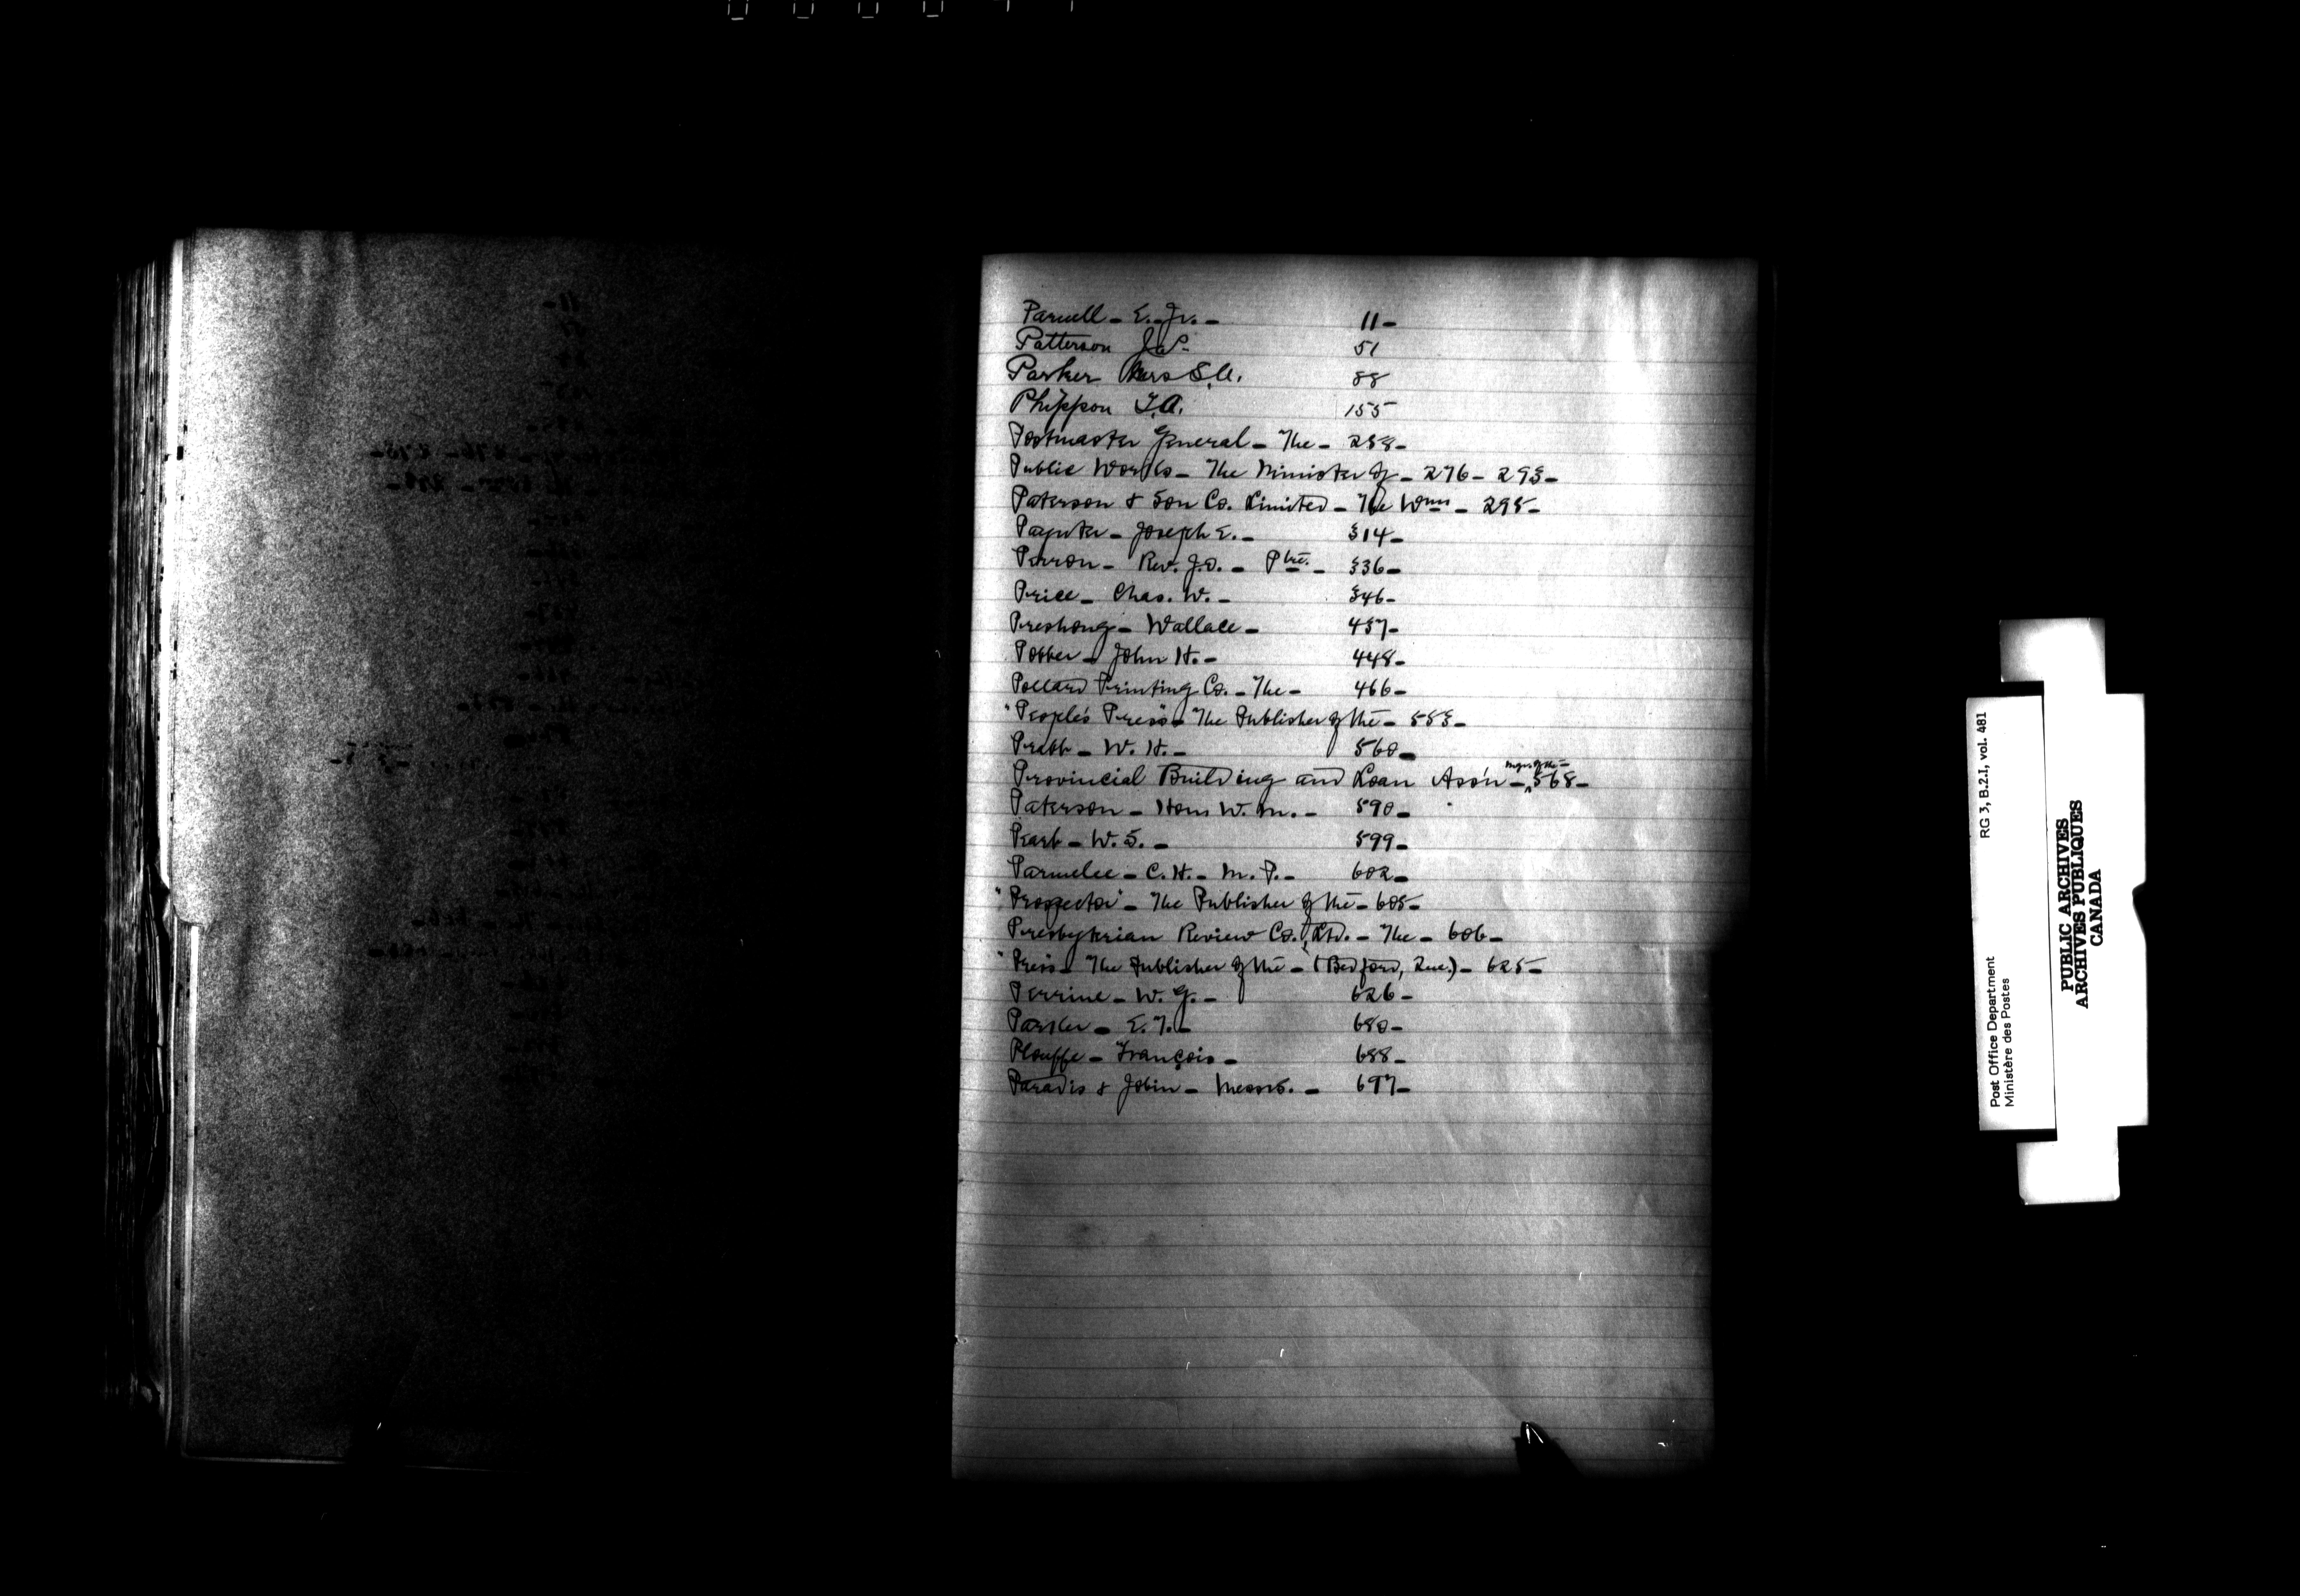 Parnell - E. Jr. - 11 -
Patterson Jas. 51
Parker Mrs S.A. 88
Phippon T.A. 155
Postmaster General - The - 258 -
Public Works - The Minister of - 276 - 293 -
Paterson & Son Co. Limited - The Wm - 295 -
Paynter - Joseph E. - 314 -
Perron - Rev. J.O. - Ptre. - 336 -
Price - Chas. W. - 346 -
Preshong - Wallace - 437 -
Potter - John H. - 448 -
Pollard Printing Co. - The - 466 -
"People's Press" - The Publisher of the - 553 -
Pratt - W. H. - 560 -
Provincial Building and Loan Ass'n - Mgr. of the - 568 -
Paterson - Hon W. M. - 590 -
Peart - W. S. - 599 -
Parmelee - C. H. - M. P. - 602 -
"Prospector" - The Publisher of the - 605 -
Presbyterian Review Co., Ltd. - The - 606 -
"Press" - The Publisher of the - (Bedford, Que.) - 625 -
Perrine - W. G. - 626 -
Parker - E. T. - 680 -
Plouffe - François - 688 -
Paradis & Jobin - Messrs. - 697 -
Post Office Department RG 3, B.2.1, vol. 481
Ministère des Postes
PUBLIC ARCHIVES
ARCHIVES PUBLIQUES
CANADA